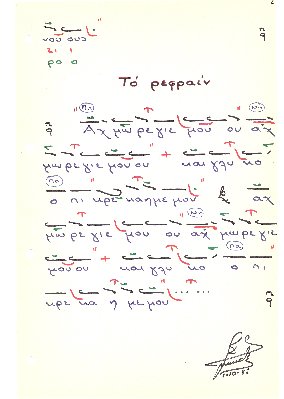 νου ουσ
ζι ι
ρο ο
Τό ρεφραίν
Αχ μωρεγιε μου ου αχ
μωρεγιεμουου και γλυ κο
ο πι κρε κα η με μου αχ
μω ρε γιε μου ου αχ μωρεγιε
μουου και γλυ κο ο πι
κρε κα η με μου